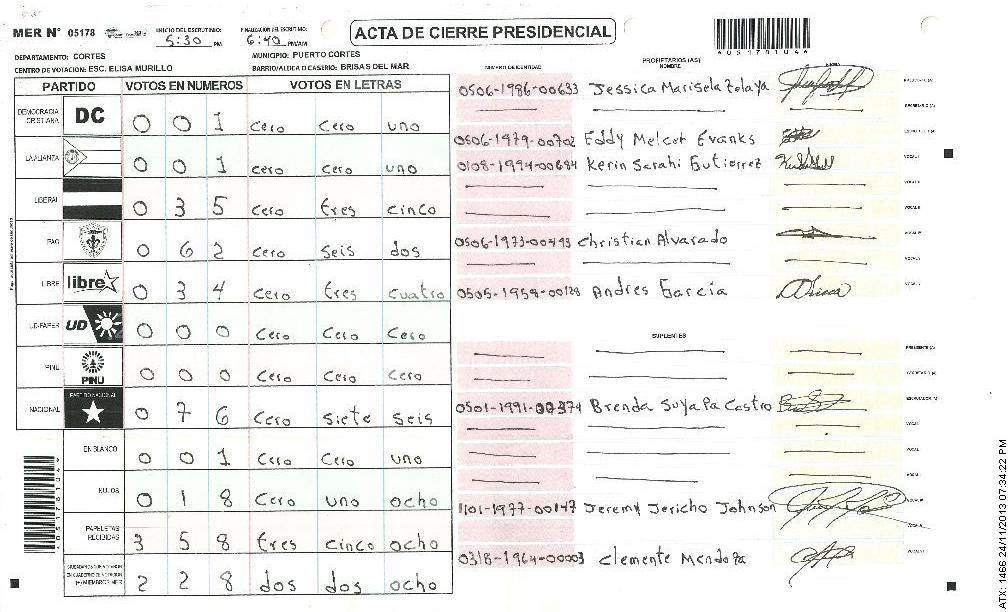 MER N° 05178 INICIO DEL ESCRUTINIO: 5:30 PM FINALIZACIÓN DEL ESCRUTINIO: 6:40 PM/AM
ACTA DE CIERRE PRESIDENCIAL
DEPARTAMENTO: CORTES MUNICIPIO: PUERTO CORTES
CENTRO DE VOTACION: ESC. ELISA MURILLO BARRIO/ALDEA O CASERIO: BRISAS DEL MAR
PARTIDO VOTOS EN NUMEROS VOTOS EN LETRAS
DEMOCRACIA CRISTIANA DC 0 0 1 cero cero uno
LA ALIANZA 0 0 1 cero cero uno
LIBERAL 0 3 5 cero tres cinco
PAC 0 6 2 cero seis dos
LIBRE libre 0 3 4 cero tres cuatro
UD-FAPER UD 0 0 0 cero cero cero
PINU PINU 0 0 0 cero cero cero
NACIONAL PARTIDO NACIONAL 0 7 6 cero siete seis
EN BLANCO 0 0 1 cero cero uno
NULOS 0 1 8 cero uno ocho
PAPELETAS RECIBIDAS 3 5 8 tres cinco ocho
CIUDADANOS QUE VOTARON EN CUADERNO DE VOTACION (+) MIEMBROS MER 2 2 8 dos dos ocho
NUMERO DE IDENTIDAD PROPIETARIOS (AS) NOMBRE FIRMA
0506-1986-00633 Jessica Marisela Zelaya PRESIDENTE (A)
SECRETARIO (A)
0506-1979-00702 Eddy Melcot Evanks ESCRUTADOR (A)
0108-1994-00684 Kerin Sarahi Gutierrez VOCAL I
VOCAL II
VOCAL III
0506-1973-00493 Christian Alvarado VOCAL IV
VOCAL V
0505-1959-00128 Andres Garcia
SUPLENTES
PRESIDENTE (A)
SECRETARIO (A)
0501-1991-00374 Brenda Suyapa Castro ESCRUTADOR (A)
VOCAL I
1101-1977-00147 Jeremy Jericho Johnson
0318-1964-00003 Clemente Mendoza
ATX: 1466 24/11/2013 07:34:22 PM